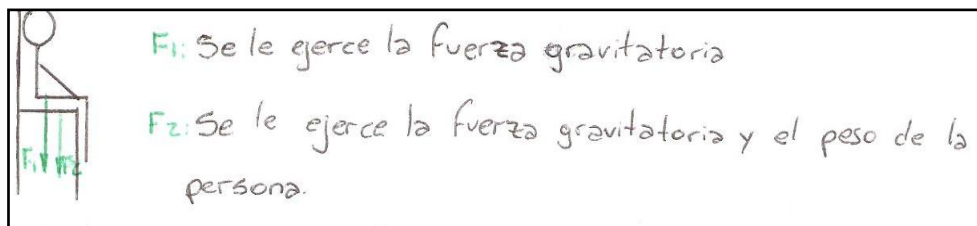 F1: Se le ejerce la fuerza gravitatoria
F2: Se le ejerce la fuerza gravitatoria y el peso de la
persona.
F1 F2